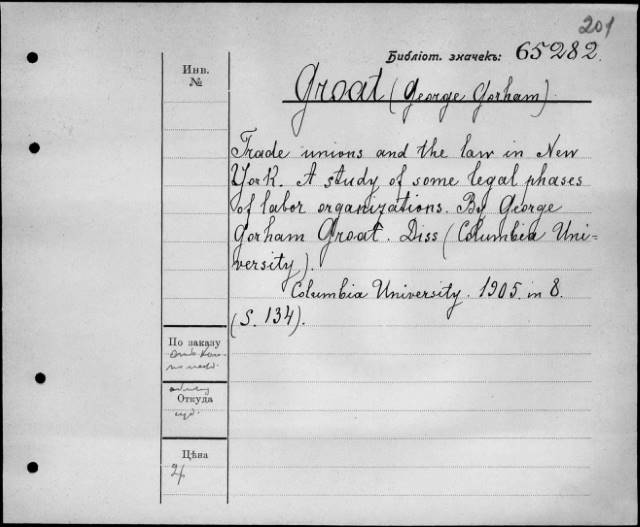 201
Библіот. значекъ: 65282.
Инв.
№
Groat (George Gorham).
Trade unions and the law in New
York. A study of some legal phases
of labor organizations. By George
Gorham Groat. Diss (Columbia Uni-
versity).
Columbia University. 1905. in 8.
(S. 134).
По заказу
Откуда
Цѣна